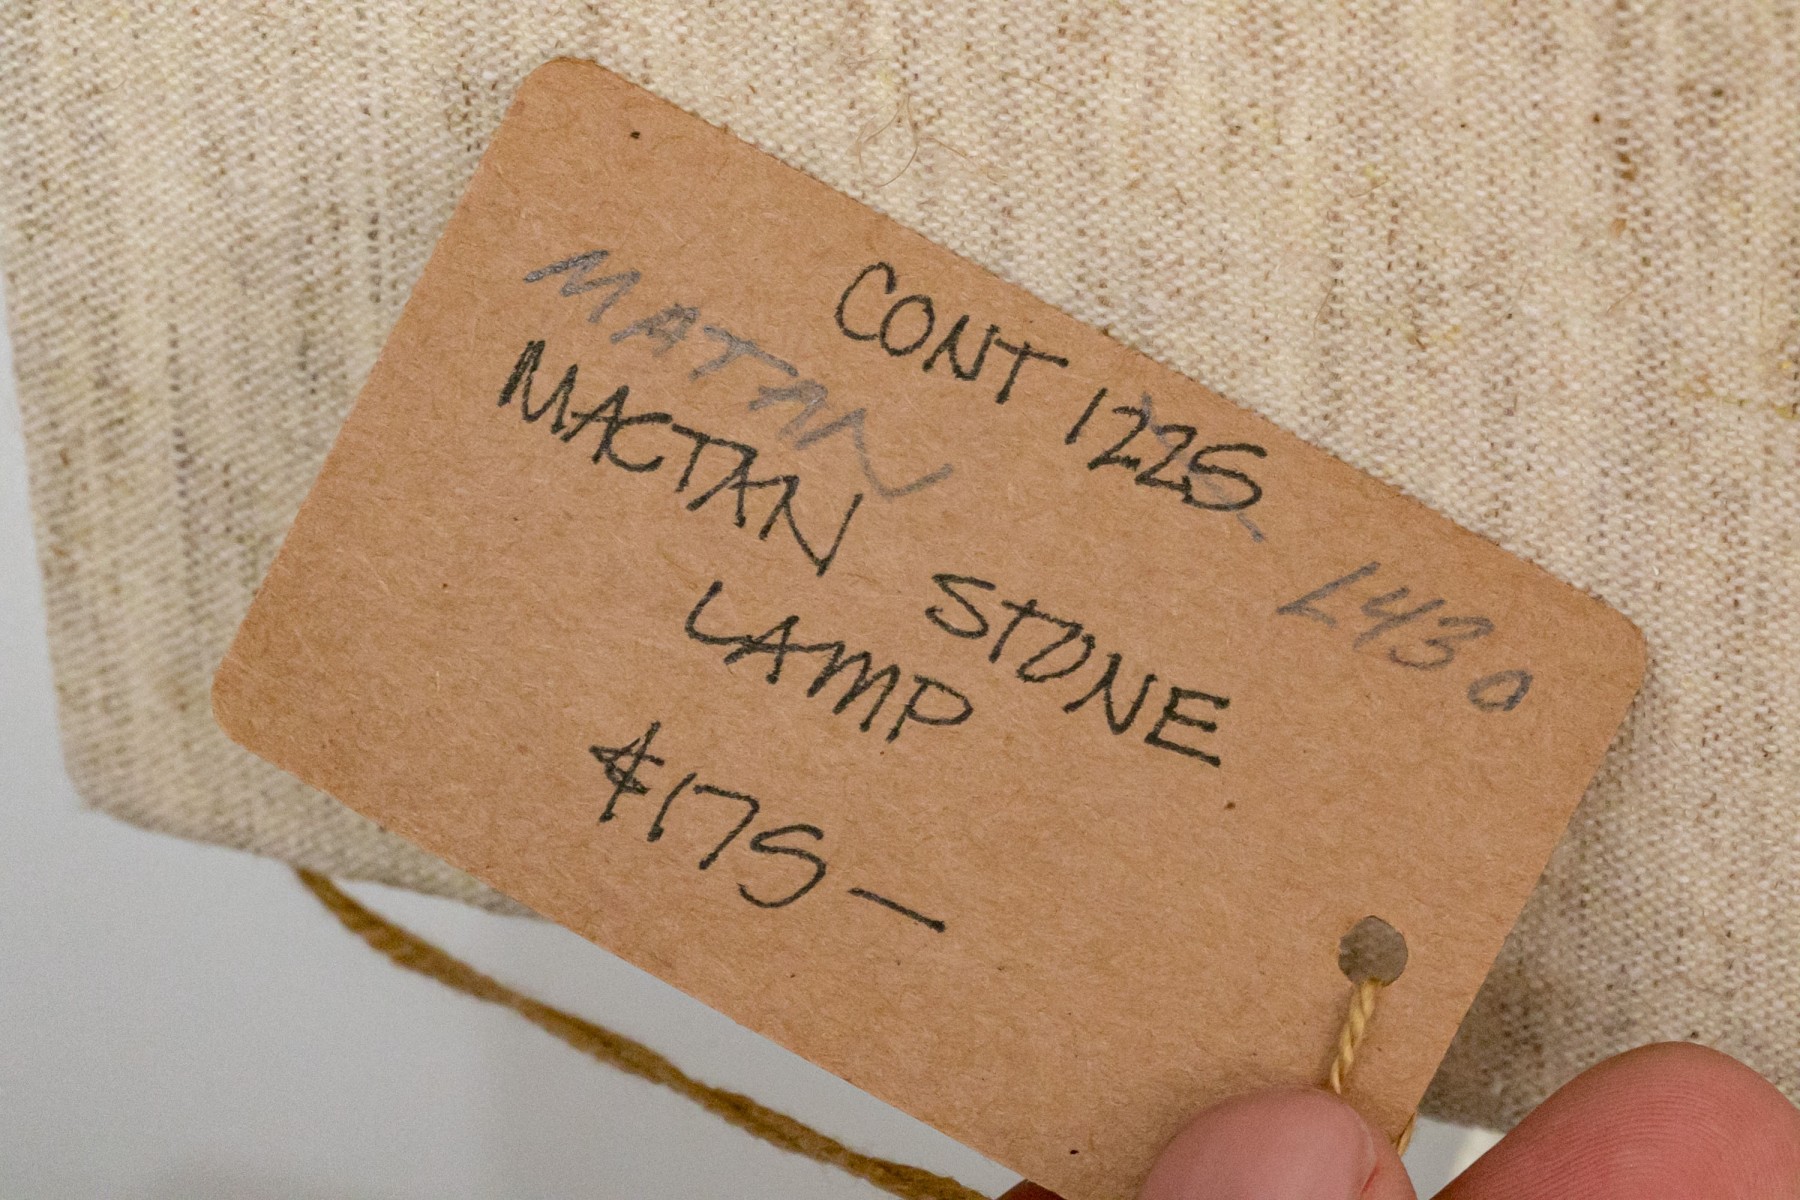 CONT 1225
MATAN L430
MACTAN STONE
LAMP
$175—